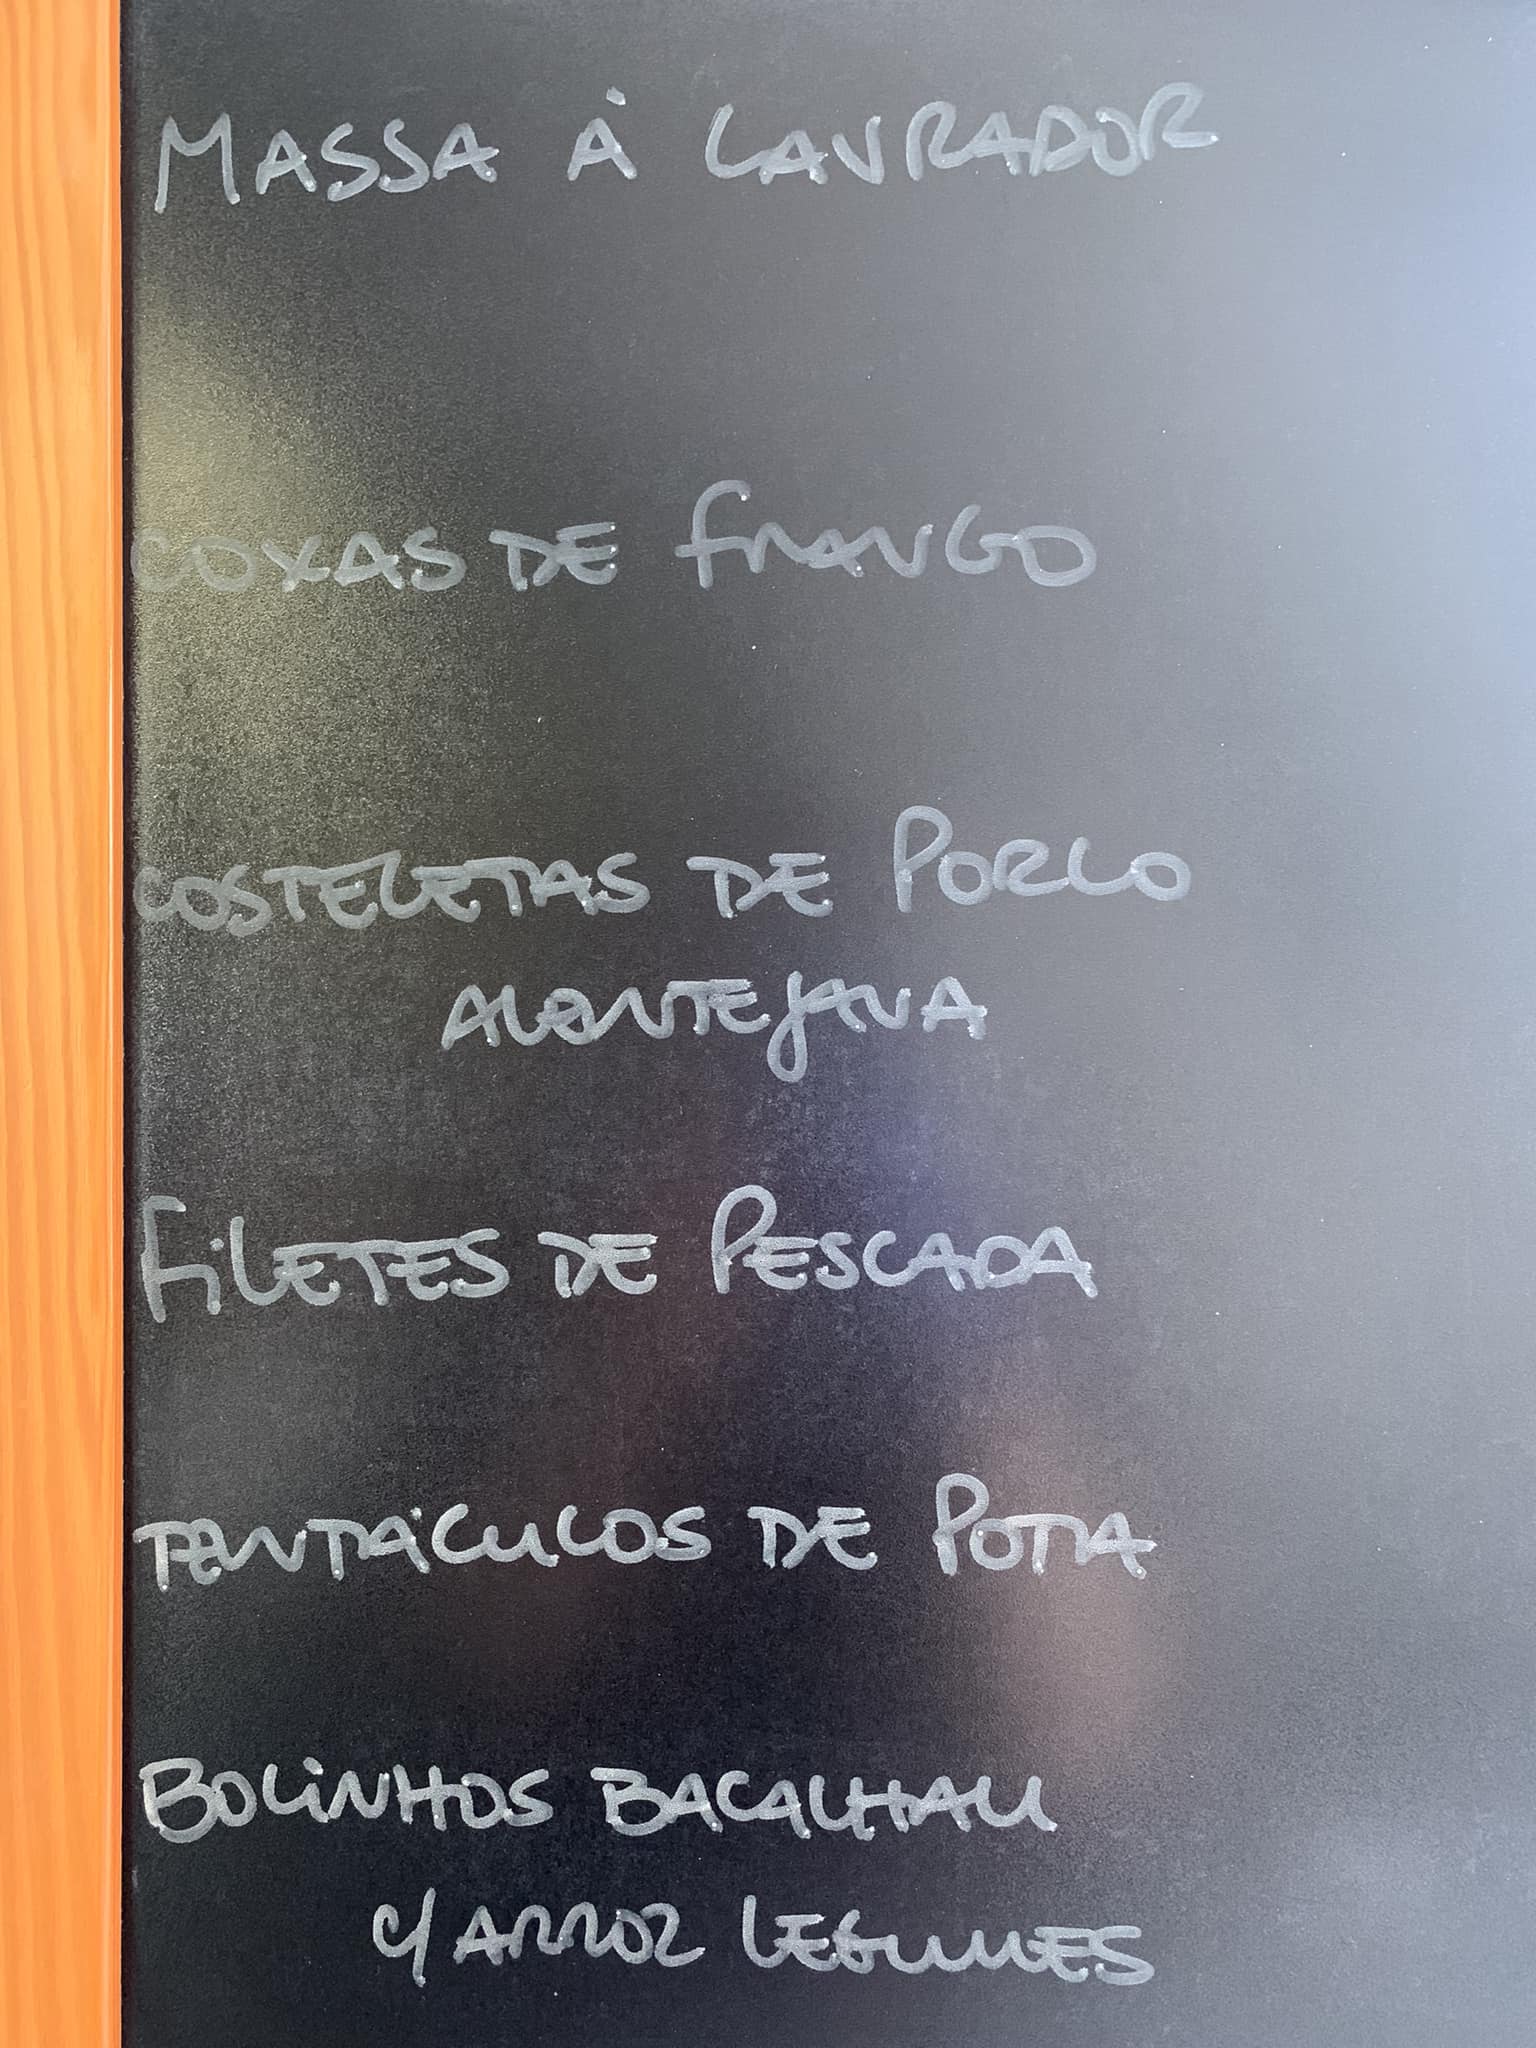 MASSA À LAVRADOR
COXAS DE FRANGO
COSTELETAS DE PORCO
ALENTEJANA
FILETES DE PESCADA
TENTÁCULOS DE POTA
BOLINHOS BACALHAU
C/ ARROZ LEGUMES